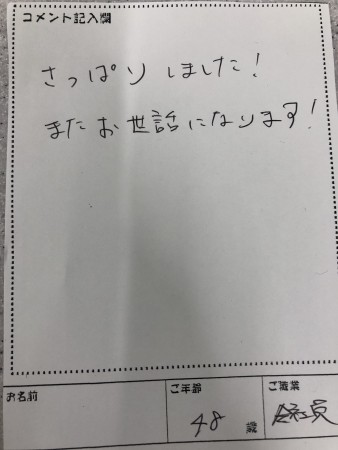 コメント記入欄
さっぱりしました!
またお世話になります!
お名前
ご年齢
48 歳
ご職業
会社員